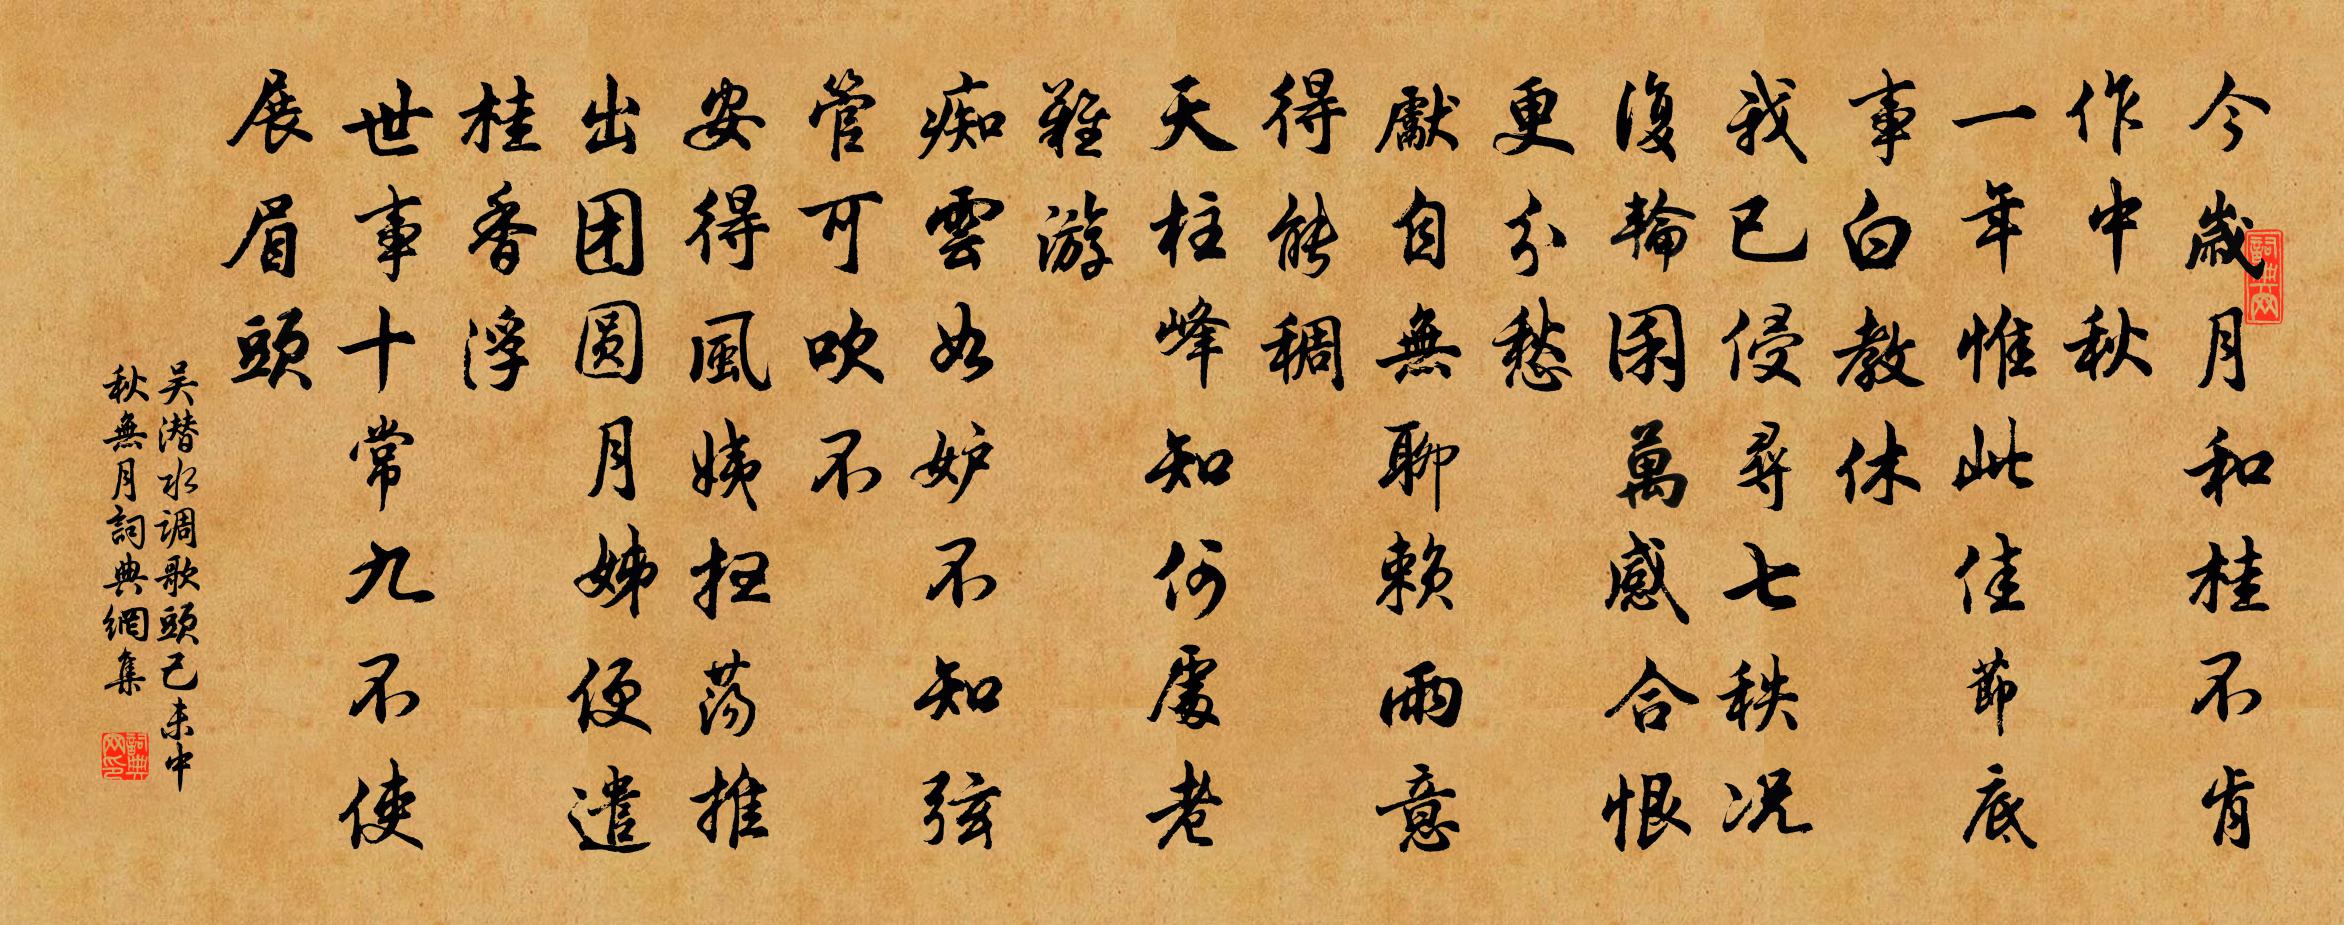 今歲月和桂不肯
作中秋
一年惟此佳節底
事白教休
我已侵尋七秩况
復輪囷萬感合恨
更分愁
獻自無聊賴雨意
得能稠
天柱峰知何處老
難游
痴雲如妒不知弦
管可吹不
安得風姨扫蕩推
出团圆月姊便遣
桂香浮
世事十常九不使
展眉頭
吴潜水调歌頭己未中
秋無月詞典網集
詞典网
詞典网印